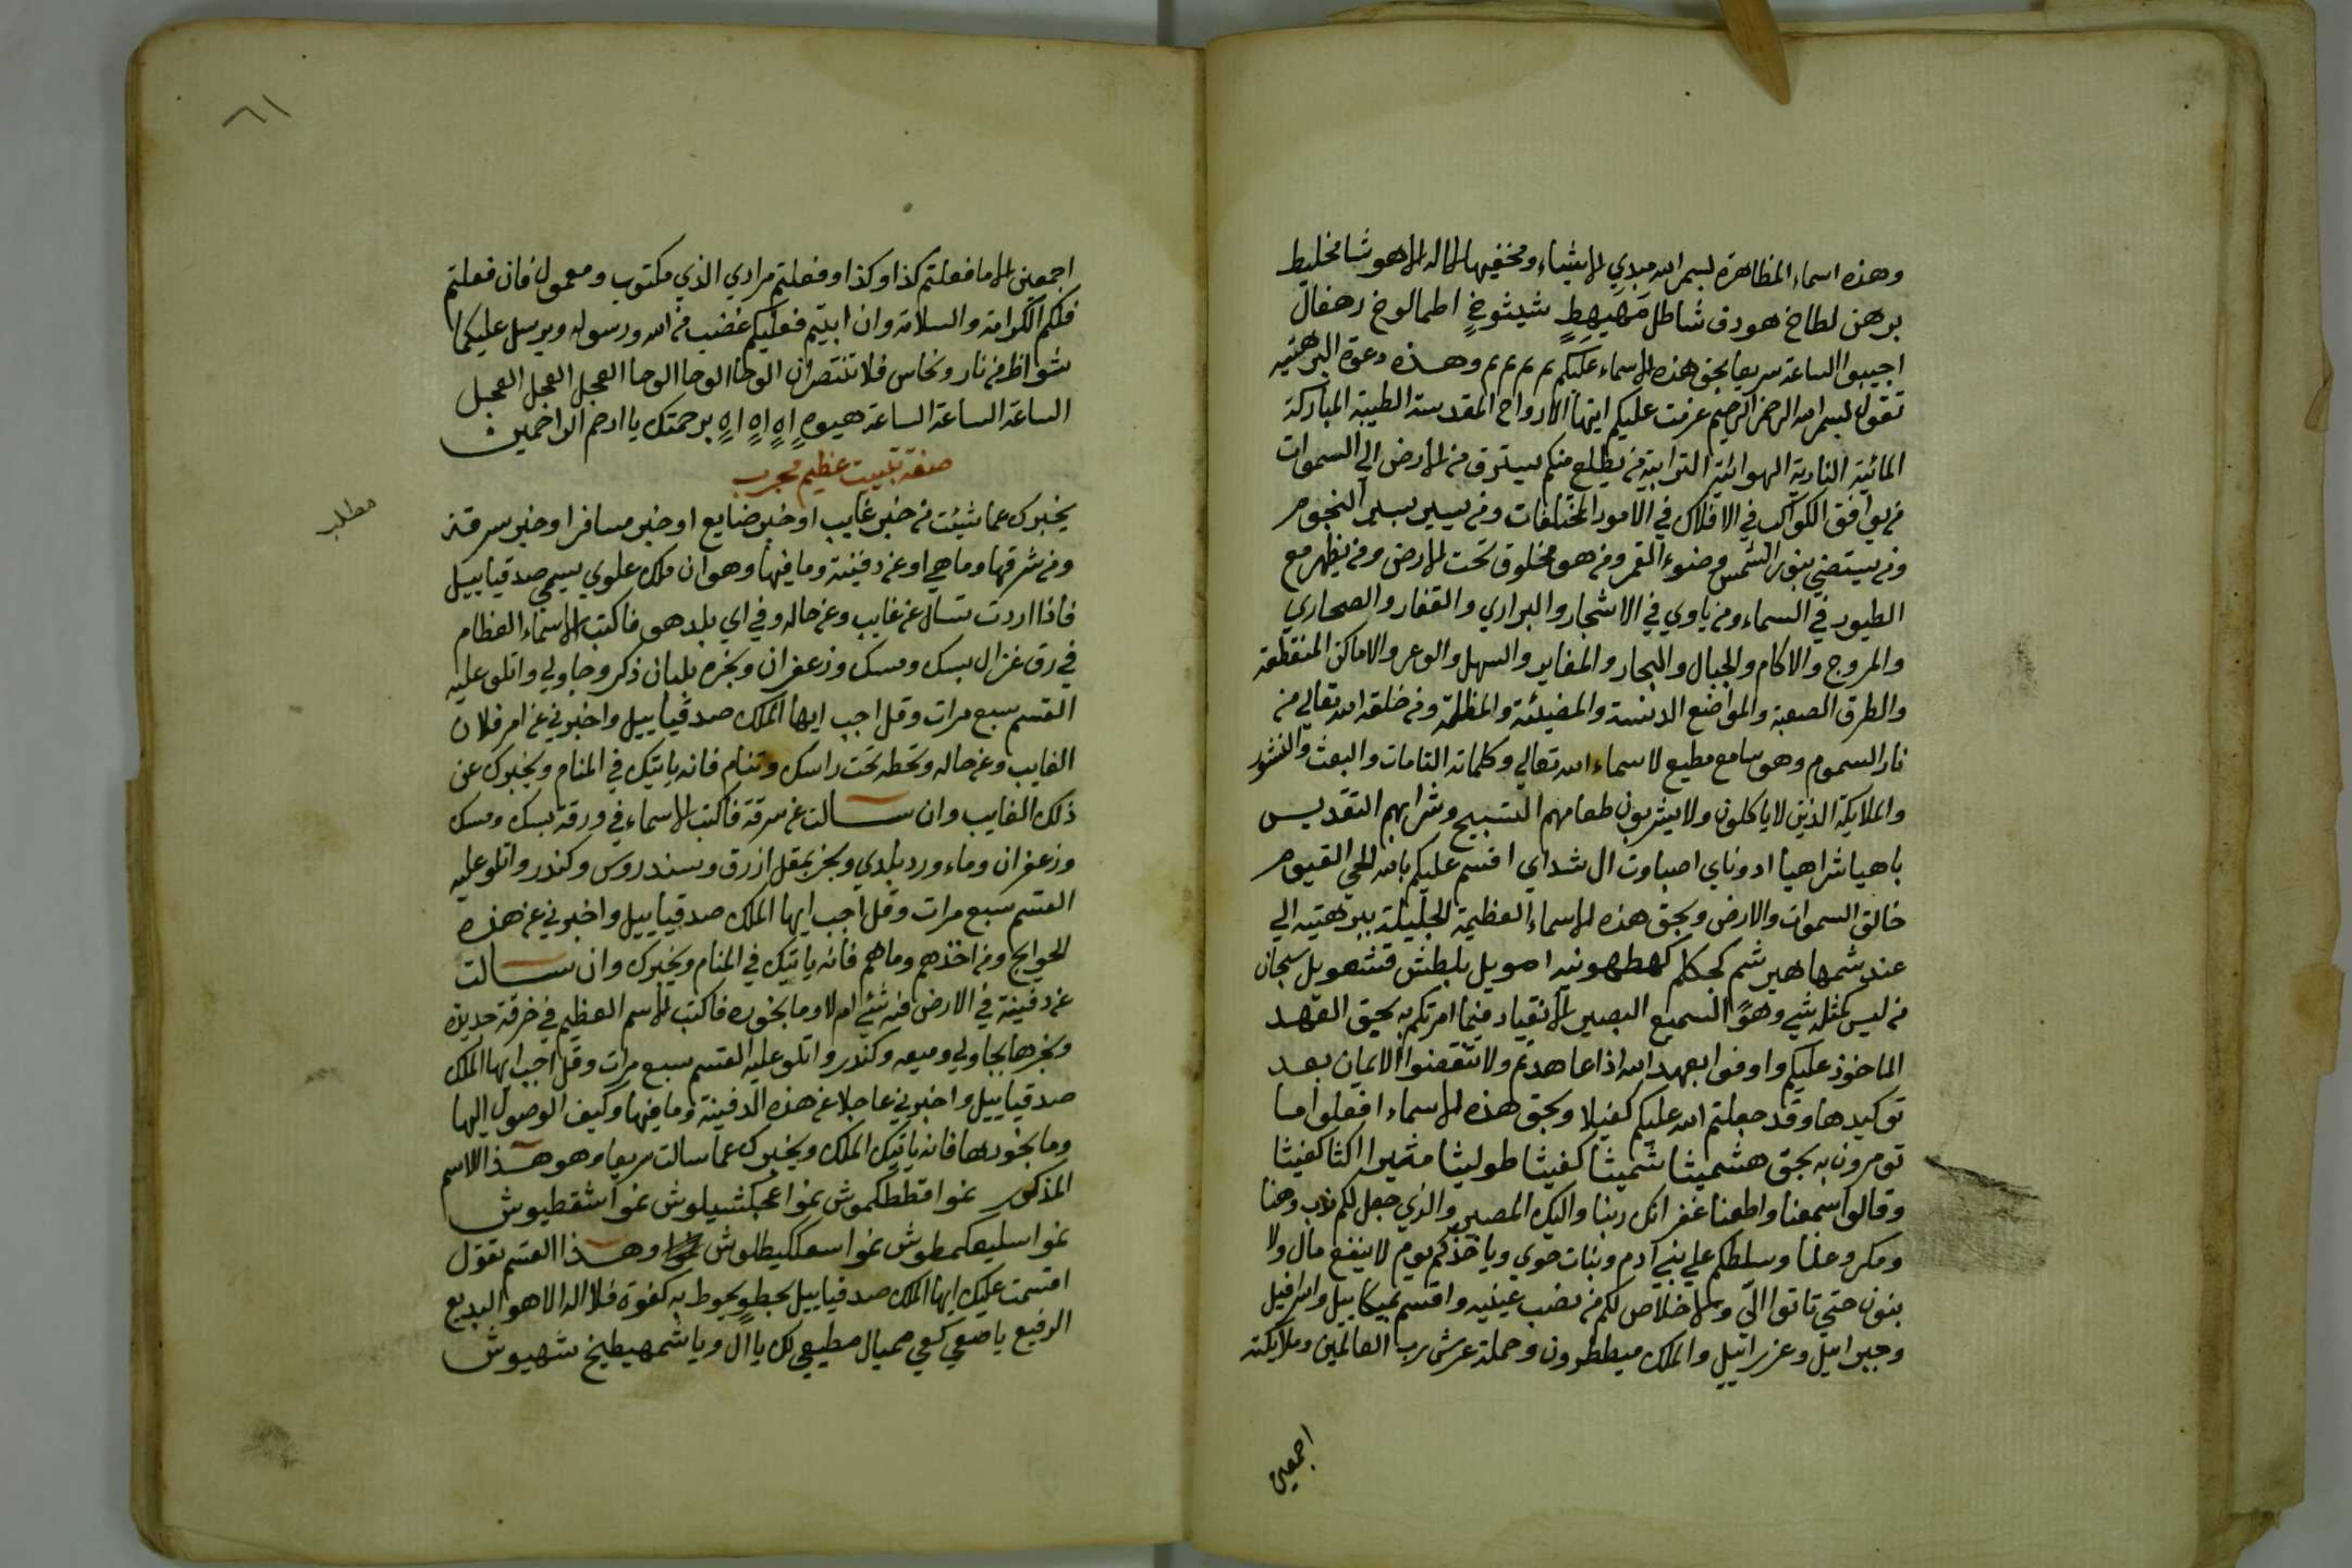 وهذه اسماء الظاهرة بسم الله مبدي الاشياء ومخفيها لا اله الا هو شامخليط
برهن لطاخ هورق شاطل مهيهط شيشوخ اطمالوخ رهفال
اجيبوا الساعة سريعا بحق هذه الاسماء عليكم م م م م وهذه دعوة البرهتيه
تقول بسم الله الرحمن الرحيم عزمت عليكم ايتها الارواح المقدسة الطيبة المباركة
المائية النارية الهوائية الترابية من يطلع منكم يسترق من الارض الى السموات
من يوافق الكواكب في الافلاك في الامور المختلفات ومن يسير بسير النجوم
ومن يستضي بنور الشمس وضوء القمر ومن هو مخلوق تحت الارض ومن يظهر مع
الطيور في السماء ومن ياوي في الاشجار والبراري والقفار والصحاري
والمروج والاكام والجبال والبحار والمغاير والسهل والوعر والاماكن المنقطعة
والطرق الصعبة والمواضع الدنسة والمضيئة والمظلمة ومن خلقه الله تعالي من
نار السموم وهو سامع مطيع لاسماء الله تعالي وكلماته التامات والبعث والنشور
والملايكة الذين لا ياكلون ولا يشربون طعامهم التسبيح وشرابهم التقديس
باهيا شراهيا ادوناي اصباوت ال شداي اقسم عليكم بالله الحي القيوم
خالق السموات والارض وبحق هذه الاسماء العظيمة الجليلة ببرهتيه الي
عند شمهاهير شم كجكلم كهطهونيه امويل بلطش قنشهويل سبحان
من ليس كمثله شي وهو السميع البصير الا نقياد فيما امرتكم به بحق العهد
الماخوذ عليكم واوفوا بعهد الله اذا عاهدتم ولا تنقضوا الايمان بعد
توكيدها وقد جعلتم الله عليكم كفيلا وبحق هذه الاسماء افعلوا ما
تومرون به بحق هشميثا شميثا كفيثا طوليثا مثيرا اكثا كفيثا
وقالوا سمعنا واطعنا غفرانك ربنا واليك المصير والذي جعل لكم
ومكر وعلنا وسلطكم علي بني آدم وبنات حوي وياخذكم يوم لا ينفع مال ولا
بنون حتي تاتوا الي والا خلاص لكم من نصب عينيه واقسم بميكاييل واسرافيل
وجبراييل وعزراييل والملك ميططرون وحملة عرش رب العالمين وملايكته
اجمعين
٦١
اجمعين الا ما فعلتم كذا وكذا وفعلتم مرادي الذي مكتوب ومعمول فان فعلتم
فلكم الكرامة والسلامة وان ابيتم فعليكم غضب من الله ورسوله ويرسل عليكما
شواظ من نار ونحاس فلا تنتصران الوحا الوحا الوحا العجل العجل العجل
الساعة الساعة الساعة هيوه اه اه اه اه برحمتك يا ارحم الراحمين
صفة تبييت عظيم مجرب
مطلب
يخبرك عما شيئت من خبر غايب او خبر ضايع او خبر مسافر او خبر سرقة
ومن سرقها وما هي او عن دفينة وما فيها وهو ان ملك علوي يسمي صدقياييل
فاذا اردت تسال عن غايب وعن حاله وفي اي بلد هو فاكتب الاسماء العظام
في رق غزال بسك ومسك وزعفران وبخره بلبان ذكر وجاولي واتلو عليه
القسم سبع مرات وقل اجب ايها الملك صدقياييل واخبرني عن امر فلان
الغايب وعن حاله وتحطه تحت راسك وتنام فانه ياتيك في المنام ويخبرك عن
ذلك الغايب وان سالت عن سرقة فاكتب الاسماء في ورقة بسك ومسك
وزعفران وماء ورد بلدي وبخر بمقل ازرق وسندروس وكندر واتلو عليه
القسم سبع مرات وقل اجب ايها الملك صدقياييل واخبرني عن هذه
الحوايج ومن اخذهم وما هم فانه ياتيك في المنام ويخبرك وان سالت
عن دفينة في الارض فيه شئ ام لا وما بخوره فاكتب الاسم العظيم في خرقة حرير
وبخرها بجاولي وميعه وكندر واتلو عليه القسم سبع مرات وقل اجب ايها الملك
صدقياييل واخبرني عاجلا عن هذه الدفينة وما فيها وكيف الوصول اليها
وما بخورها فانه ياتيك الملك ويخبرك عما سالت سريعا وهو هذا الاسم
المذكور غوا قططكموش غوا عجكشيلوش غوا شقطيوش
غوا سليعكمطوش غوا سعككيطلوش وهذا القسم تقول
اقسمت عليك ايها الملك صدقياييل بحطو بحوط به كفوة فلا اله الا هو البديع
الرفيع يا صعي كعي ميال مطيعي لك يا ال ويا شمهيطيخ شهيوش